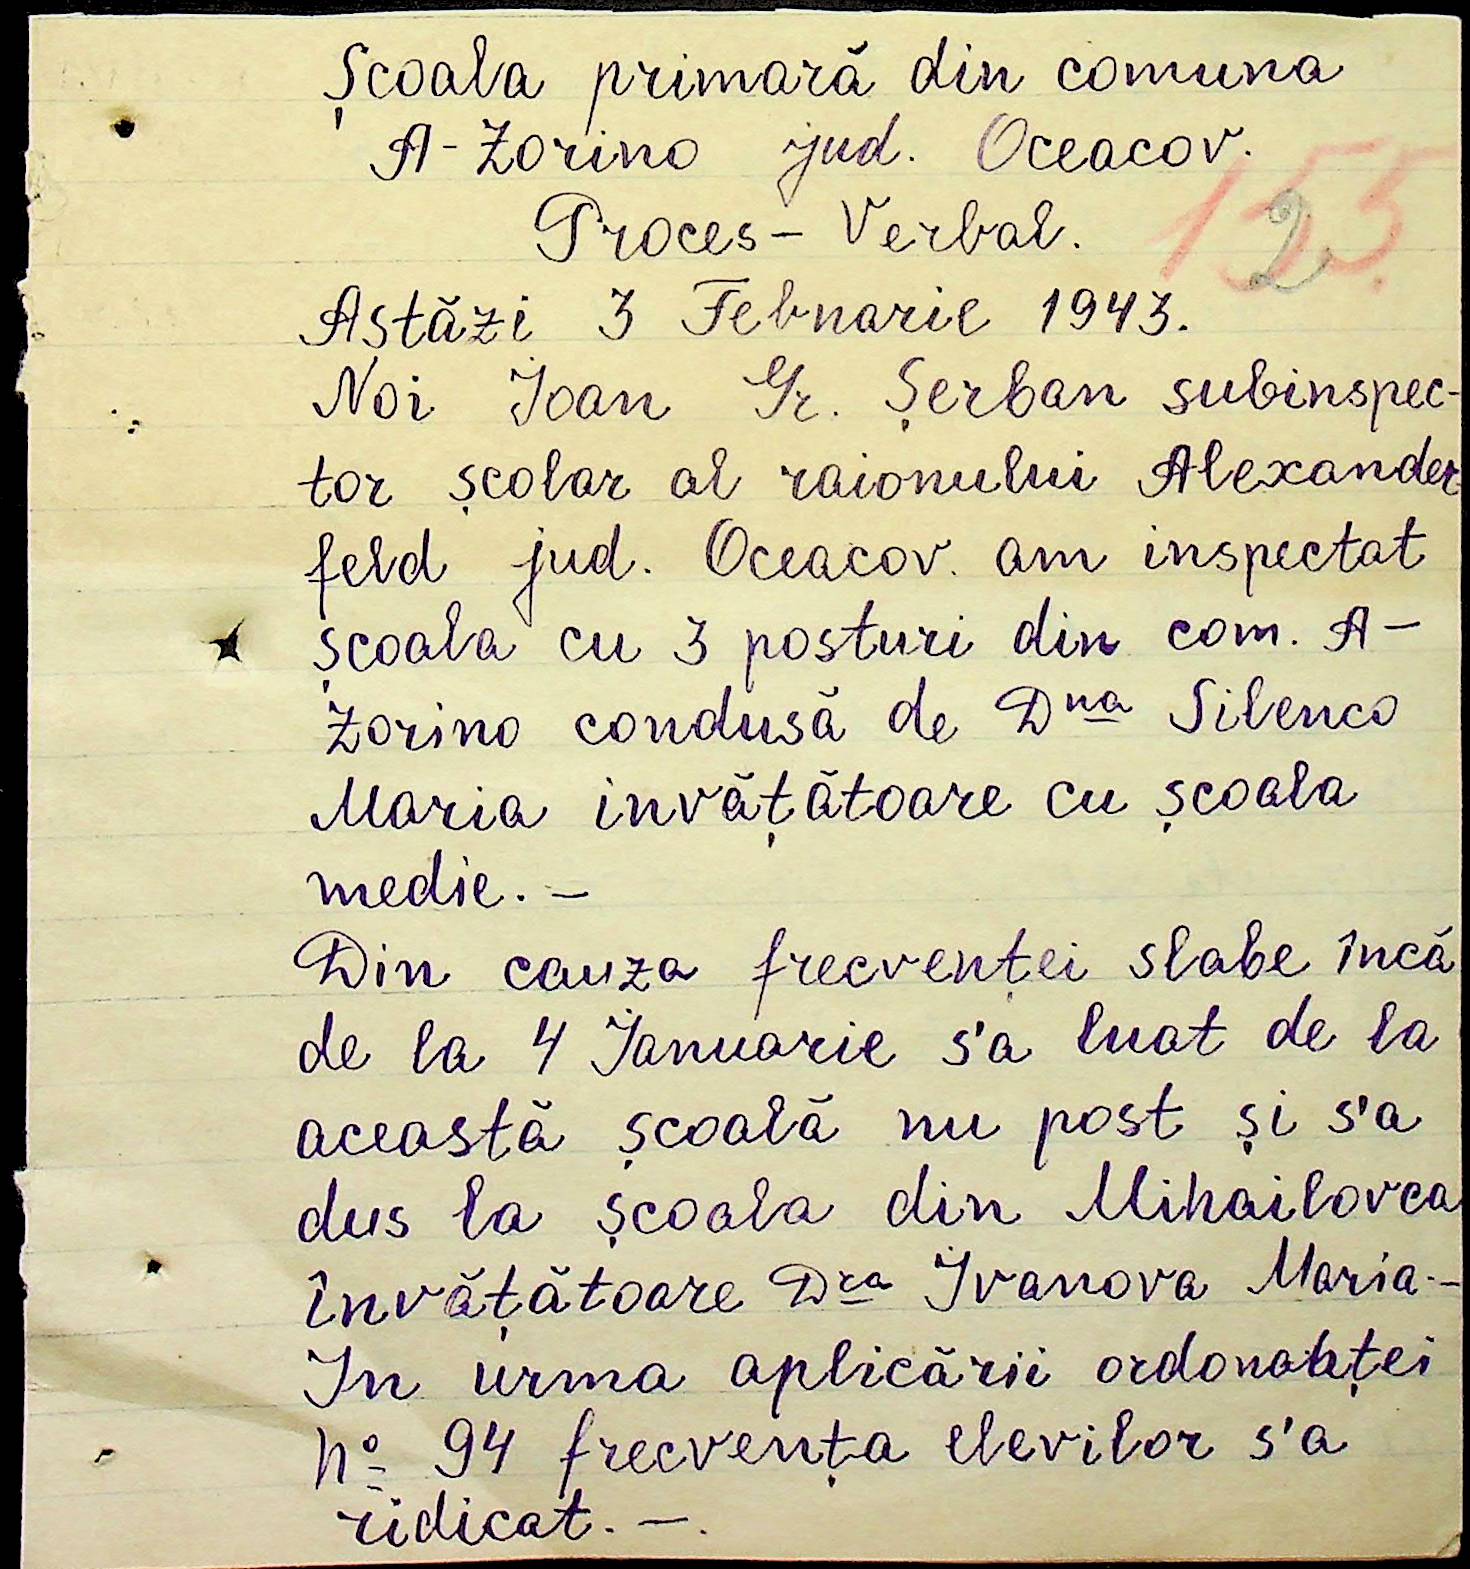 Școala primară din comuna
A-Zorino jud. Oceacov.
Proces-Verbal.
155
2
Aștăzi 3 Februarie 1943.
Noi Ioan Gr. Șerban subinspec-
tor școlar al raionului Alexander
feld jud. Oceacov. am inspectat
școala cu 3 posturi din com. A-
Zorino condusă de Dna Silenco
Maria invățătoare cu școala
medie. -
Din cauza frecvenței slabe încă
de la 4 Ianuarie s'a luat de la
această școală nu post și s'a
dus la școala din Mihailovca
învățătoare Dra Ivanova Maria.-
In urma aplicării ordonanței
No 94 frecvența elevilor s'a
ridicat. -.